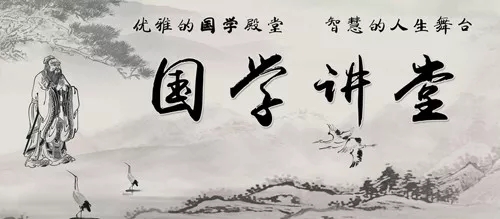 优雅的国学殿堂 智慧的人生舞台
国学讲堂